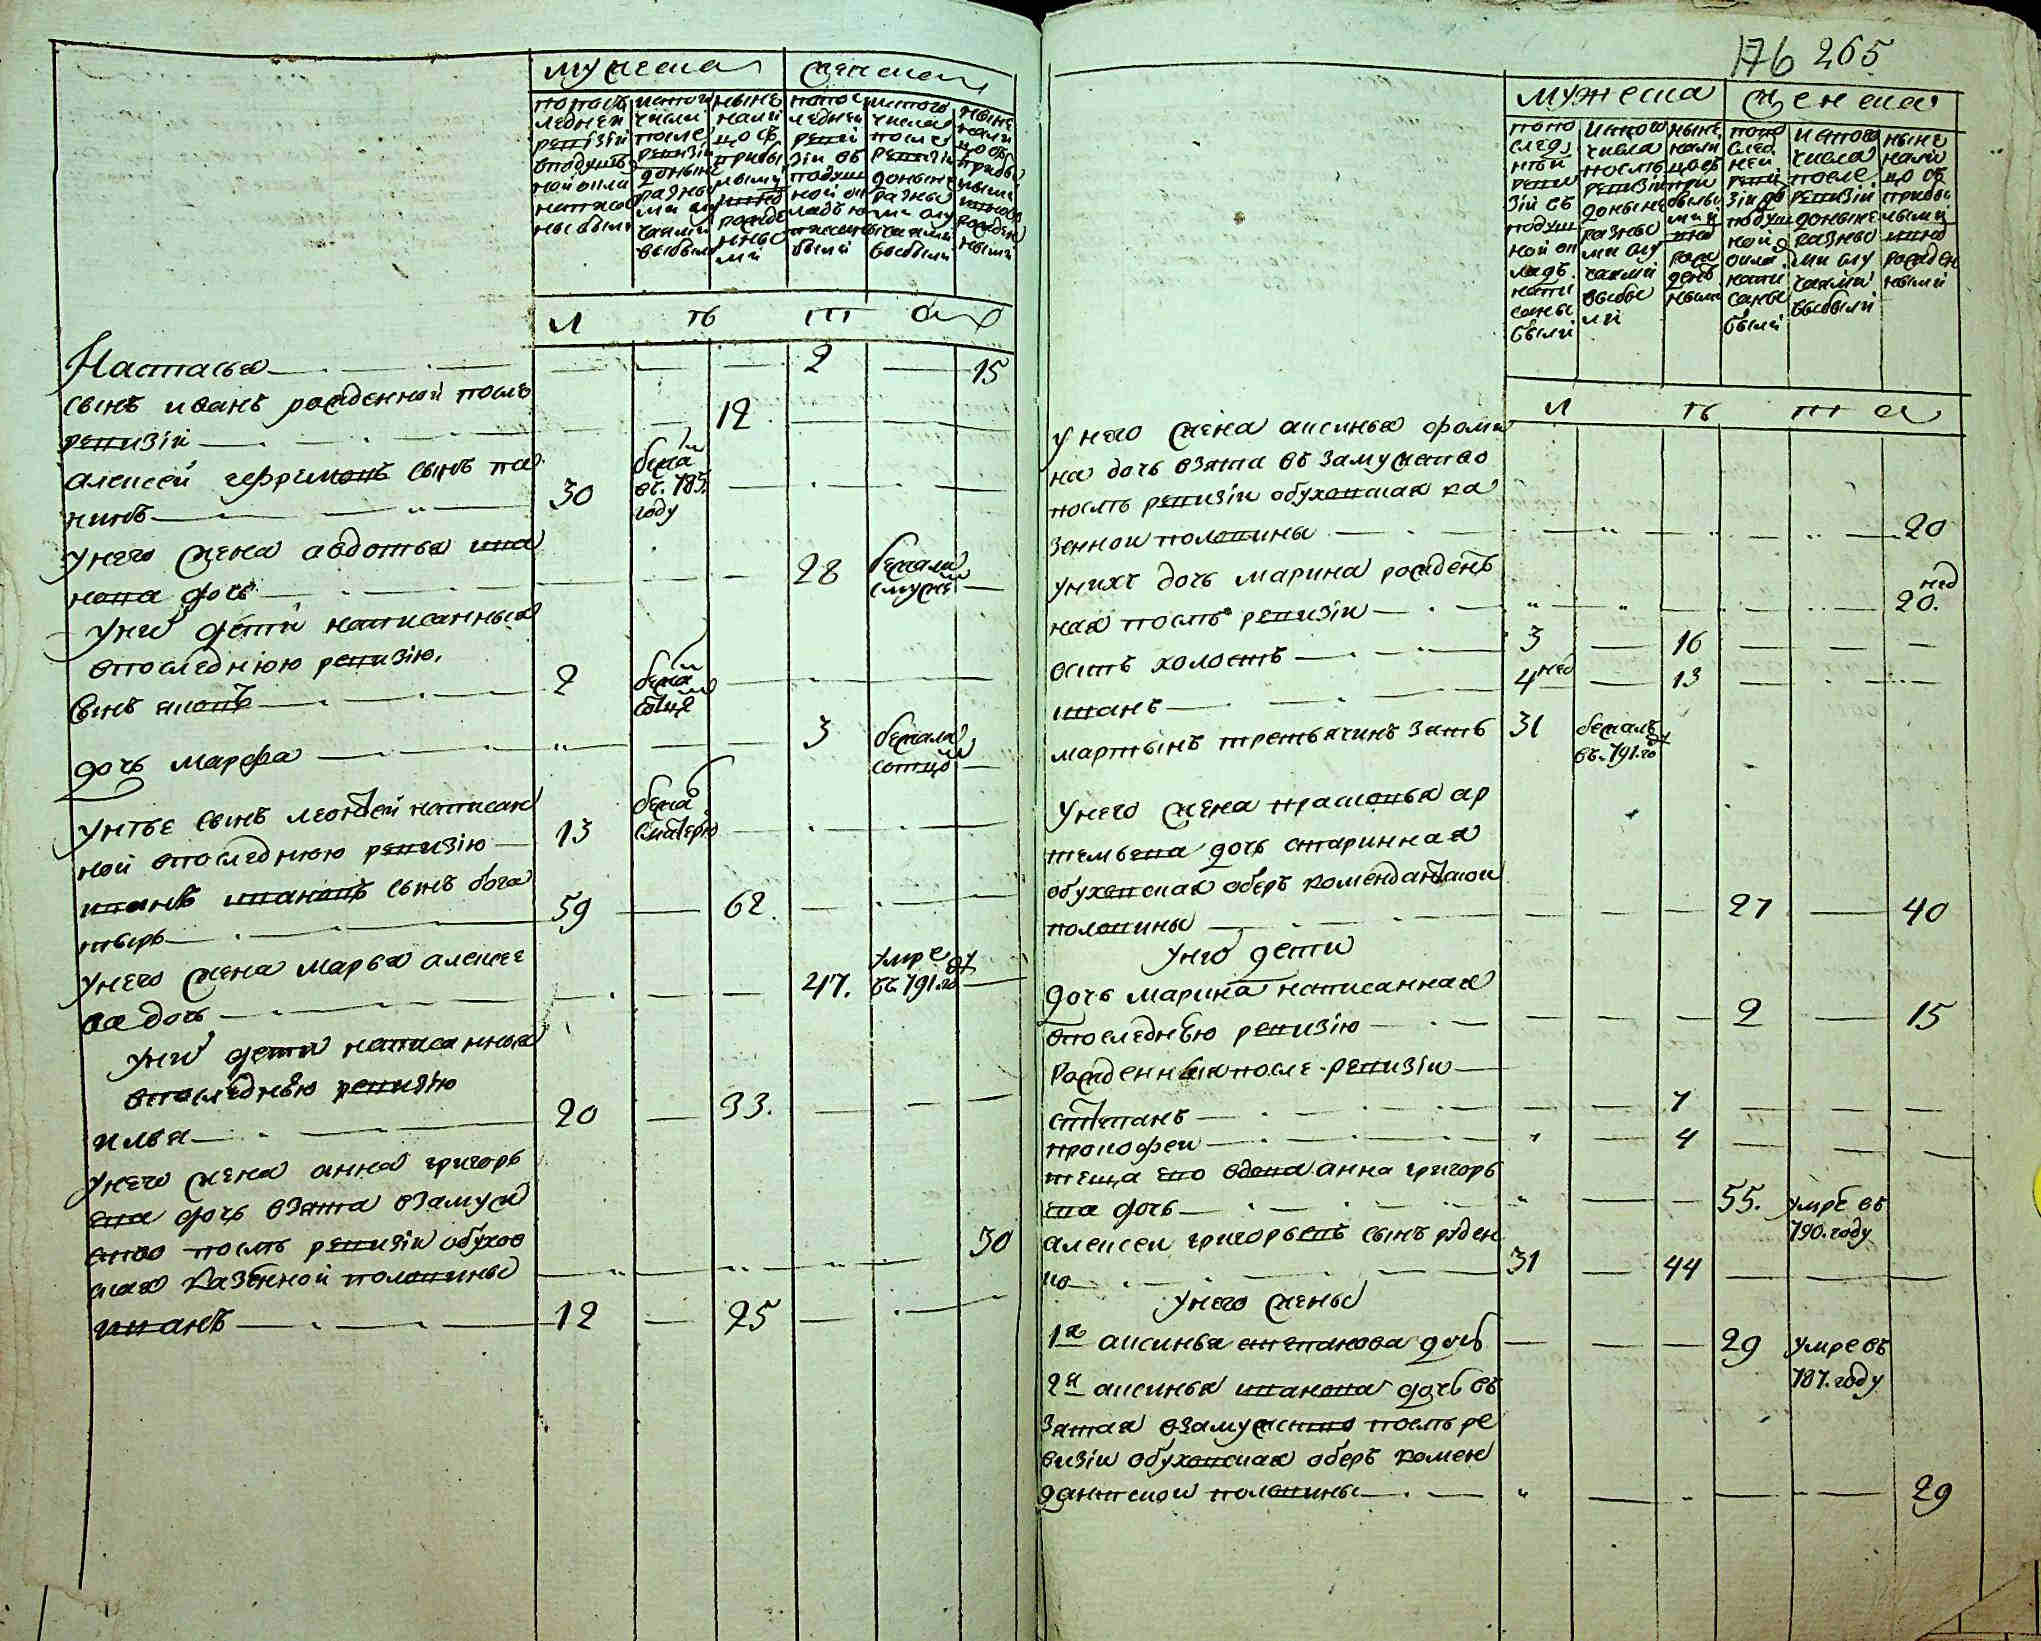 мужеска женска
попоследней ревизии вподушной оклад написаны были
изтого числа после ревизии доныне разными случаями выбыли
ныне налицо съ прибылыми и вновь рожденными
попоследней ревизии въ подушной окладъ написаны были
изтого числа после ревизии доныне разными случаями выбыли
ныне налицо съ прибылыми и вново рожденными
Л Е Т А
Настасья 2 15
сынъ иванъ рожденной послѣ
ревизіи 12
алексей сынъ па
нинъ 30 бежа въ 785 году
унего жена авдотья ива
нова дочь 28 бежала смуже
уни дети написанныя
впоследнюю ревизію.
сынъ яковъ 2 бежа
дочь марфа 3 бежала сотцо
унтье сынъ леонтей написан
ной впоследнюю ревизію 13 бежа сматерю
иванъ ивановъ сынъ бога
тырь 59 62
унего жена марья алексее
ва дочь 47. умре въ 791 году
уни дети написанныя
впоследнюю ревизію
илья 20 33.
унего жена анна григорь
ева дочь взята взамуж
ство послѣ ревизіи обухов
ская казенной половины 30
иванъ 12 25
176 265
мужеска женска
попоследнѣй ревизіи въ подушной окладъ написаны были
изтого числа послѣ ревизіи доныне разными случаями выбыли
ныне налицо съ прибылыми и вно рожденными
попоследней ревизіи въ подушной оклад написаны были
изтого числа после ревизіи доныне разными случаями выбыли
ныне налицо съ прибылыми и вно рожденными
Л Е Т А
унего жена аксинья фоми
на дочь взята въ замужство
послѣ ревизіи обуховская ка
зенной половины 20
унихъ дочь марина рожден
ная послѣ ревизіи 20. нед
осипъ холостъ 3 16
иванъ 4 нед 13
мартынъ третьячинъ зять 31 бежалъ въ 791 году
унего жена прасковья ар
темьева дочь старинная
обуховская оберъ комендантской
половины 27 40
унго дети
дочь марина написанная
впоследнюю ревизію 2 15
Рожденныя после ревизіи
степанъ 7
прокофей 4
теща ево вдова анна григорь
ева дочь 55. умре въ 790. году
алексей григорьевъ сынъ руден
ко 31 44
унего жены
1я аксинья степанова дочь 29 умре въ 787. году
2я аксинья иванова дочь въ
зятая взамужство послѣ ре
визіи обуховская оберъ комен
дантской половины 29